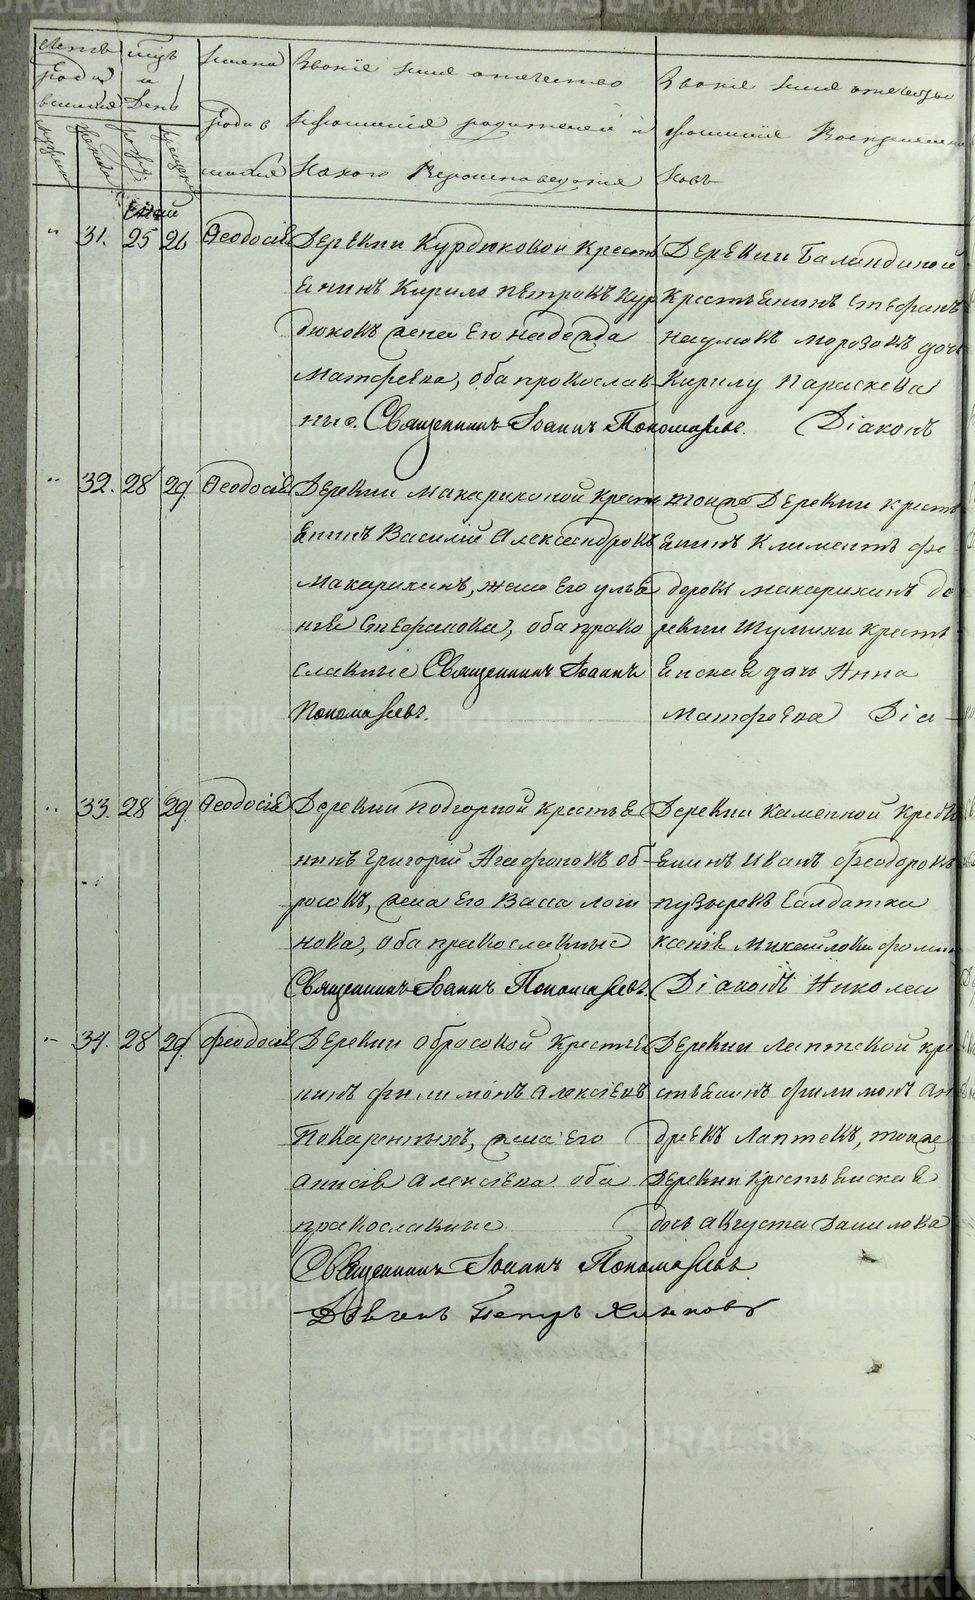 Счетъ родившихся
Мѣсяцъ и День
Имена родившихся
Званіе имя отчество и фамилія родителей и какого Вероисповеданія
Званіе имя отчество фамилія Воспріемниковъ
31. 25 26 Ѳеодосія
Деревни Курдюковой Кресть
янинъ Кирило Петровъ Кур
дюковъ жена его надежда
Матфеева, оба провослав
ные. Священникъ Іоаннъ Пономаревъ.
Деревни Баландиной
Крестьянинъ Стефанъ
наумовъ морозовъ дочь
Кирилу Параскева
Діаконъ
32. 28 29 Ѳеодосія
Деревни макарихиной кресть
янинъ Василій Александровъ
Макарихинъ, жена его улья
нія Стефанова, оба право
славные Священникъ Іоаннъ
Пономаревъ.
тойже Деревни кресть
янинъ Климентъ фе
доровъ макарихинъ де
ревни Шулихи кресть
янская дочь Анна
Матфеева Діа
33. 28 29 Ѳеодосія
Деревни подгорной крестья
нинъ Григорій Агафоновъ об
росовъ, жена его Васса логи
нова, оба православные
Священникъ Іоаннъ Пономаревъ.
Деревни Каменной Кресть
янинъ Иванъ Феодоровъ
пузыревъ Салдатка
ксенія михаилова
Діаконъ Николай
34. 28 29 Феодосія
Деревни обросовой Крестья
нинъ филимонъ алексіевъ
Поваренныхъ, жена его
анисія алексіева оба
провославные
Священникъ Іоаннъ Пономаревъ
Деревни лаптевой кре
стьянинъ филимонъ ан
дреевъ лаптевъ, тойже
деревни крестьянская
дочь августа данилова
Петръ